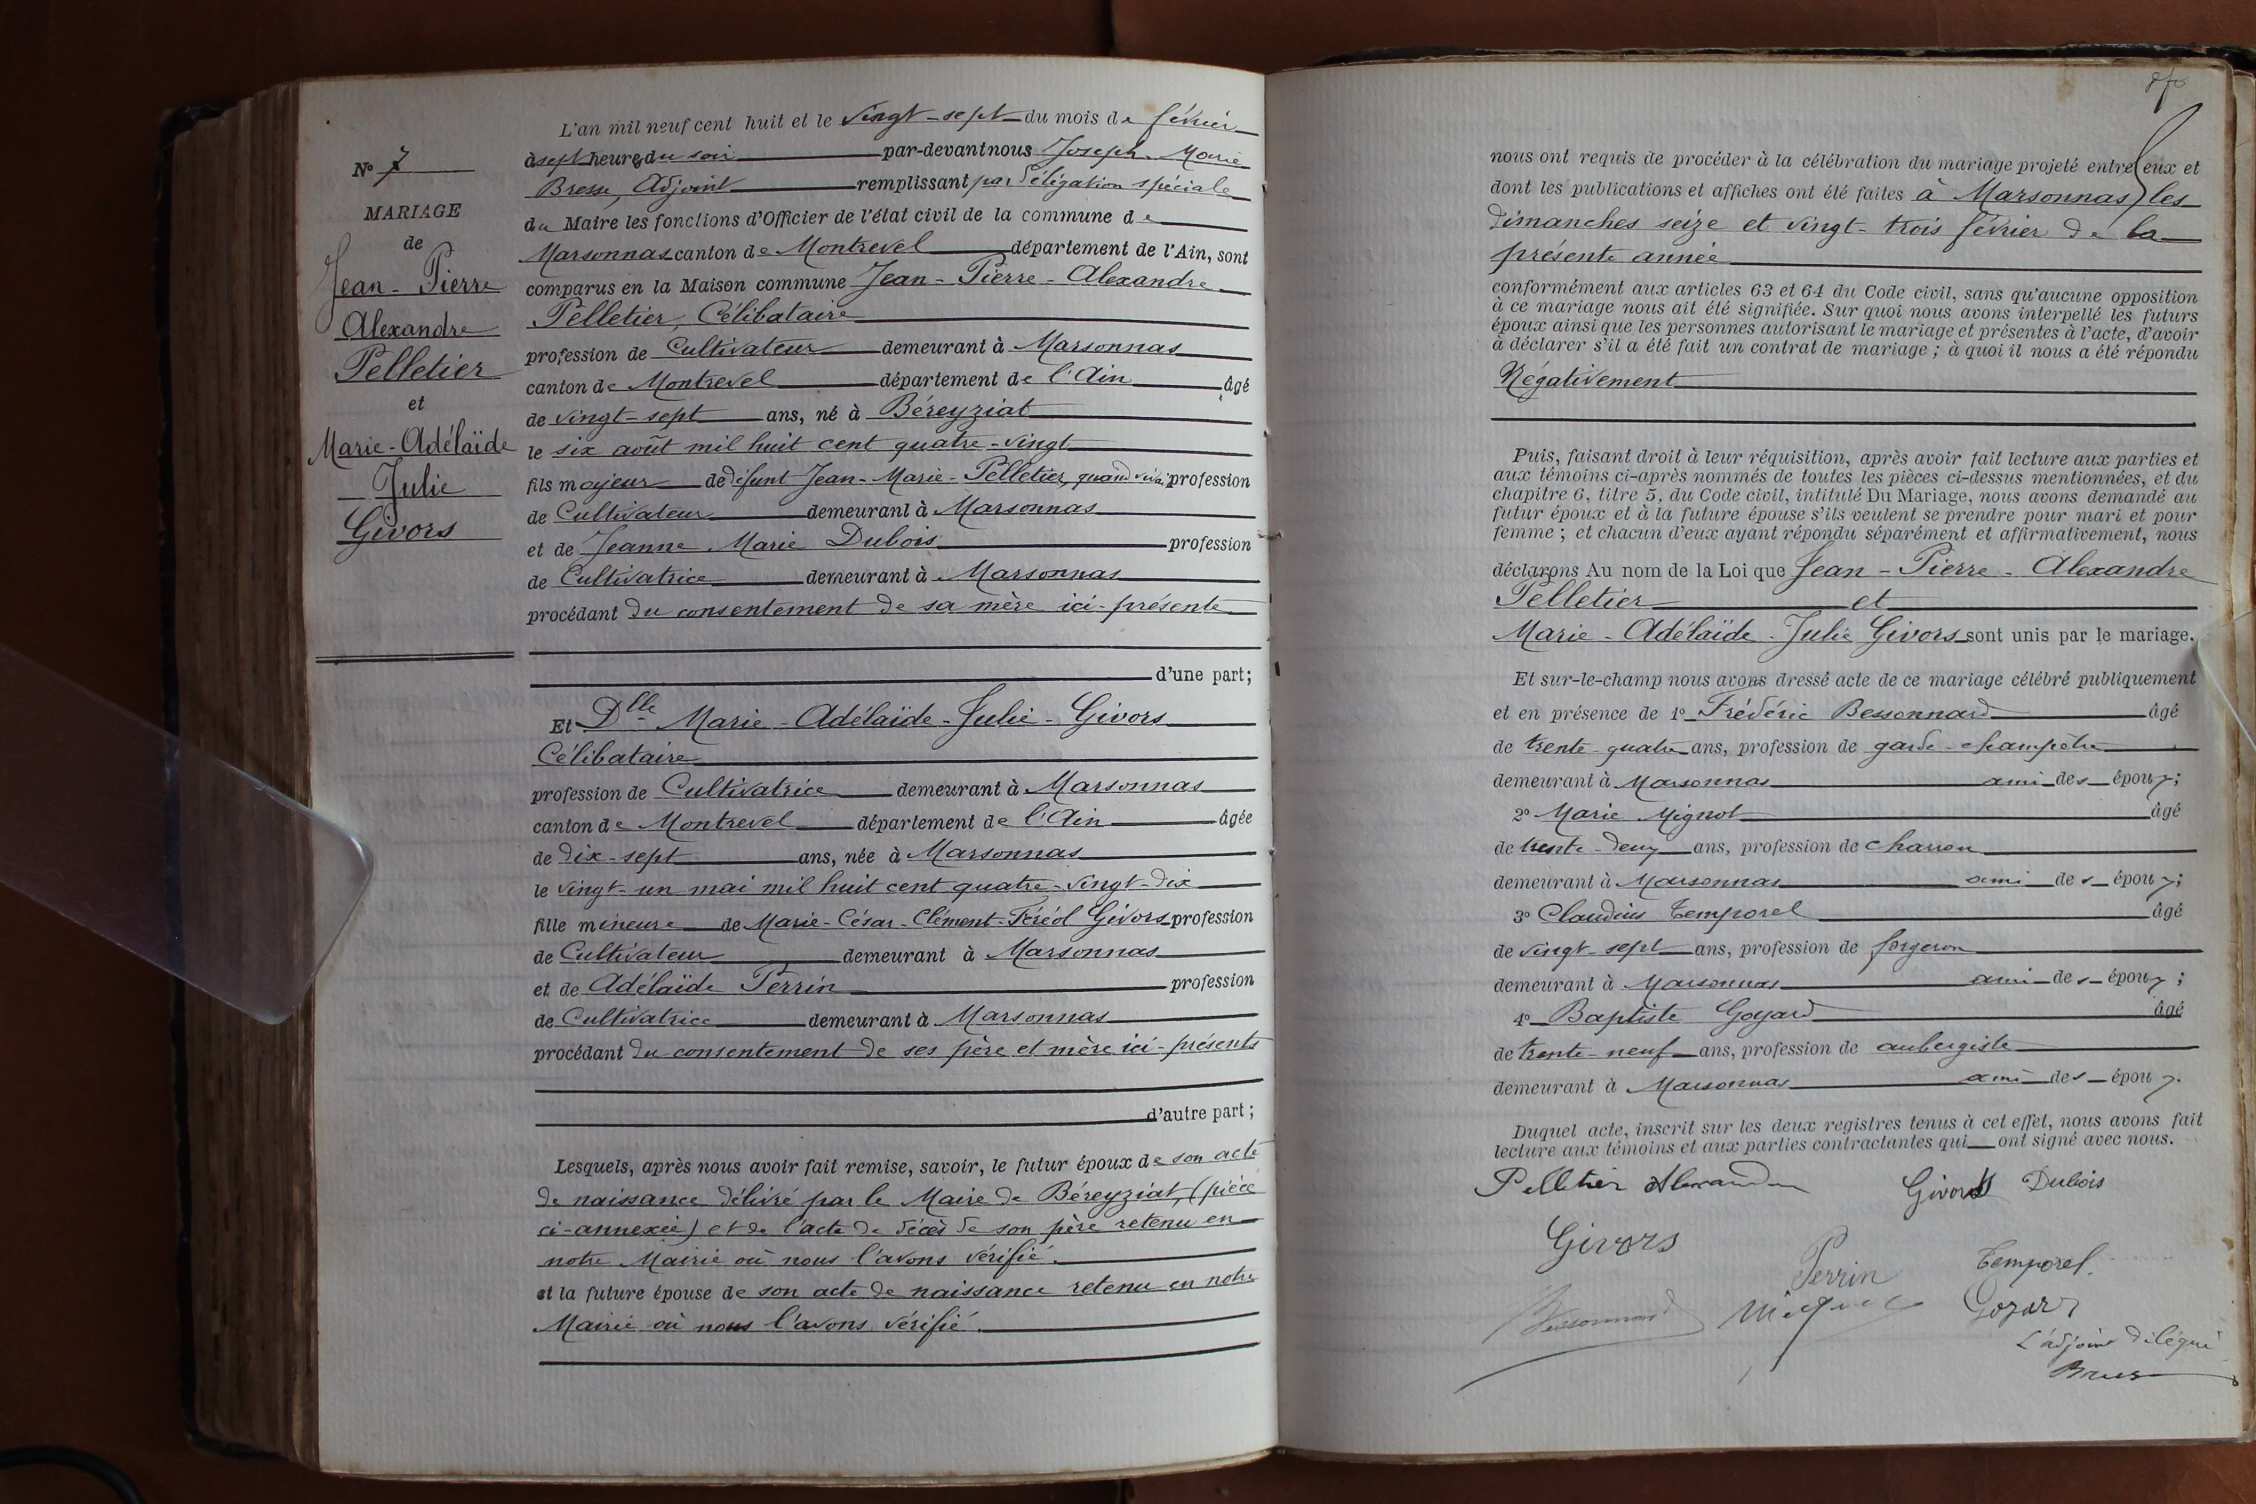 N° 7
MARIAGE
de
Jean-Pierre
Alexandre
Pelletier
et
Marie-Adélaïde
Julie
Givors
L'an mil neuf cent huit et le vingt-sept du mois de février
à sept heures du soir par-devant nous Joseph-Marie
Bresse, Adjoint remplissant par délégation spéciale
du Maire les fonctions d'Officier de l'état civil de la commune de
Marsonnas canton de Montrevel département de l'Ain, sont
comparus en la Maison commune Jean-Pierre-Alexandre
Pelletier, Célibataire
profession de Cultivateur demeurant à Marsonnas
canton de Montrevel département de l'Ain âgé
de vingt-sept ans, né à Béreyziat
le six août mil huit cent quatre-vingt
fils majeur de défunt Jean-Marie-Pelletier, quand vivait profession
de Cultivateur demeurant à Marsonnas
et de Jeanne Marie Dubois profession
de Cultivatrice demeurant à Marsonnas
procédant du consentement de sa mère ici-présente
d'une part;
Et Dlle Marie-Adélaïde-Julie-Givors
Célibataire
profession de Cultivatrice demeurant à Marsonnas
canton de Montrevel département de l'Ain âgée
de dix-sept ans, née à Marsonnas
le vingt-un mai mil huit cent quatre-vingt-dix
fille mineure de Marie-César-Clément-Féréol Givors profession
de Cultivateur demeurant à Marsonnas
et de Adélaïde Perrin profession
de Cultivatrice demeurant à Marsonnas
procédant du consentement de ses père et mère ici-présents
d'autre part;
Lesquels, après nous avoir fait remise, savoir, le futur époux de son acte
de naissance délivré par le Maire de Béreyziat, (pièce
ci-annexée) et de l'acte de décès de son père retenu en
notre Mairie où nous l'avons vérifié.
et la future épouse de son acte de naissance retenu en notre
Mairie où nous l'avons vérifié.
nous ont requis de procéder à la célébration du mariage projeté entre eux et
dont les publications et affiches ont été faites à Marsonnas les
dimanches seize et vingt-trois février de la
présente année
conformément aux articles 63 et 64 du Code civil, sans qu'aucune opposition
à ce mariage nous ait été signifiée. Sur quoi nous avons interpellé les futurs
époux ainsi que les personnes autorisant le mariage et présentes à l'acte, d'avoir
à déclarer s'il a été fait un contrat de mariage; à quoi il nous a été répondu
Négativement
Puis, faisant droit à leur réquisition, après avoir fait lecture aux parties et
aux témoins ci-après nommés de toutes les pièces ci-dessus mentionnées, et du
chapitre 6, titre 5, du Code civil, intitulé Du Mariage, nous avons demandé au
futur époux et à la future épouse s'ils veulent se prendre pour mari et pour
femme; et chacun d'eux ayant répondu séparément et affirmativement, nous
déclarons Au nom de la Loi que Jean-Pierre-Alexandre
Pelletier et
Marie-Adélaïde-Julie Givors sont unis par le mariage.
Et sur-le-champ nous avons dressé acte de ce mariage célébré publiquement
et en présence de 1° Frédéric Bessonnard âgé
de trente-quatre ans, profession de garde-champêtre
demeurant à Marsonnas ami des époux;
2° Marie Mignot âgé
de trente-deux ans, profession de charron
demeurant à Marsonnas ami des époux;
3° Claudius Temporel âgé
de vingt-sept ans, profession de forgeron
demeurant à Marsonnas ami des époux;
4° Baptiste Goyard âgé
de trente-neuf ans, profession de aubergiste
demeurant à Marsonnas ami des époux.
Duquel acte, inscrit sur les deux registres tenus à cet effet, nous avons fait
lecture aux témoins et aux parties contractantes qui ont signé avec nous.
Pelletier Alexandre Givors Dubois
Givors Perrin Temporel
Bessonnard Goyard
L'adjoint délégué